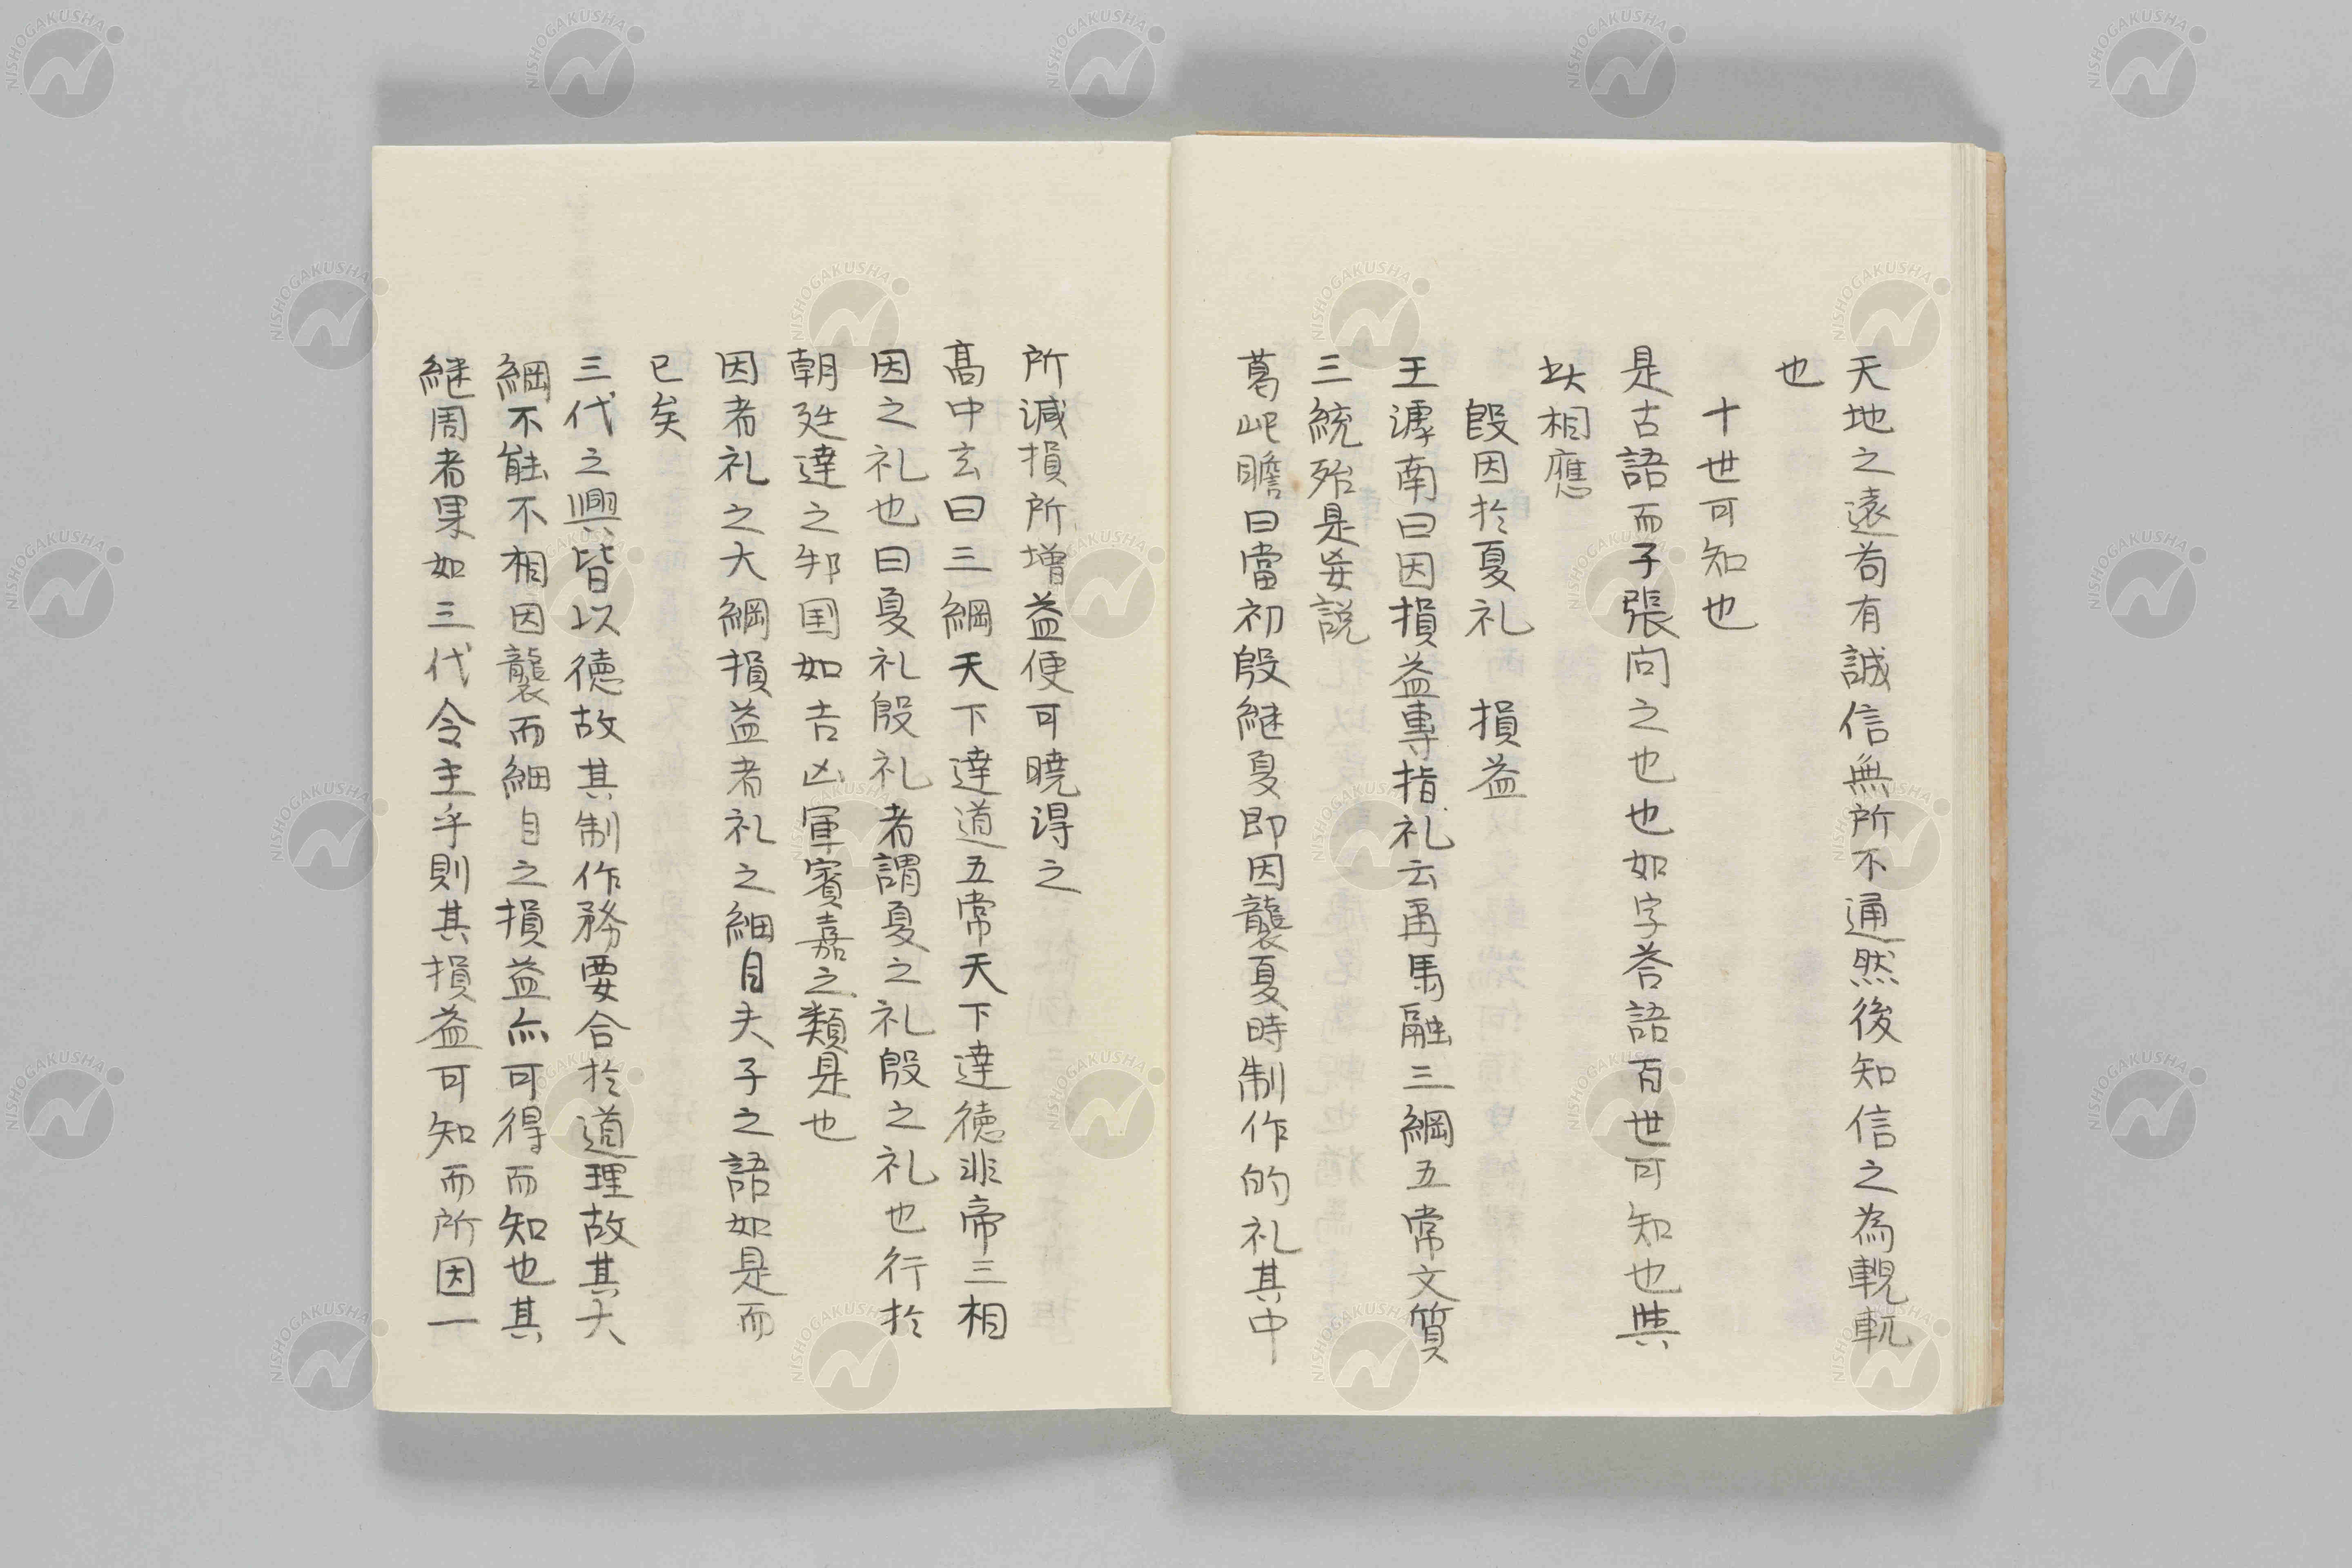 天地之遠苟有誠信無所不通然後知信之為輗軏
也
十世可知也
是古語而子張向之也也如字荅語百世可知也與
此相應
殷因於夏礼　損益
王滹南曰因損益專指礼云再馬融三綱五常文質
三統殆是妄説
葛屺瞻曰當初殷継夏即因襲夏時制作的礼其中
所減損所増益便可暁得之
髙中玄曰三綱天下達道五常天下達徳非帝三相
因之礼也曰夏礼殷礼者謂夏之礼殷之礼也行於
朝廷達之邦国如吉凶軍賓嘉之類是也
因者礼之大綱損益者礼之細目夫子之語如是而
已矣
三代之興皆以徳故其制作務要合於道理故其大
綱不能不相因襲而細目之損益亦可得而知也其
継周者果如三代令主乎則其損益可知而所因一